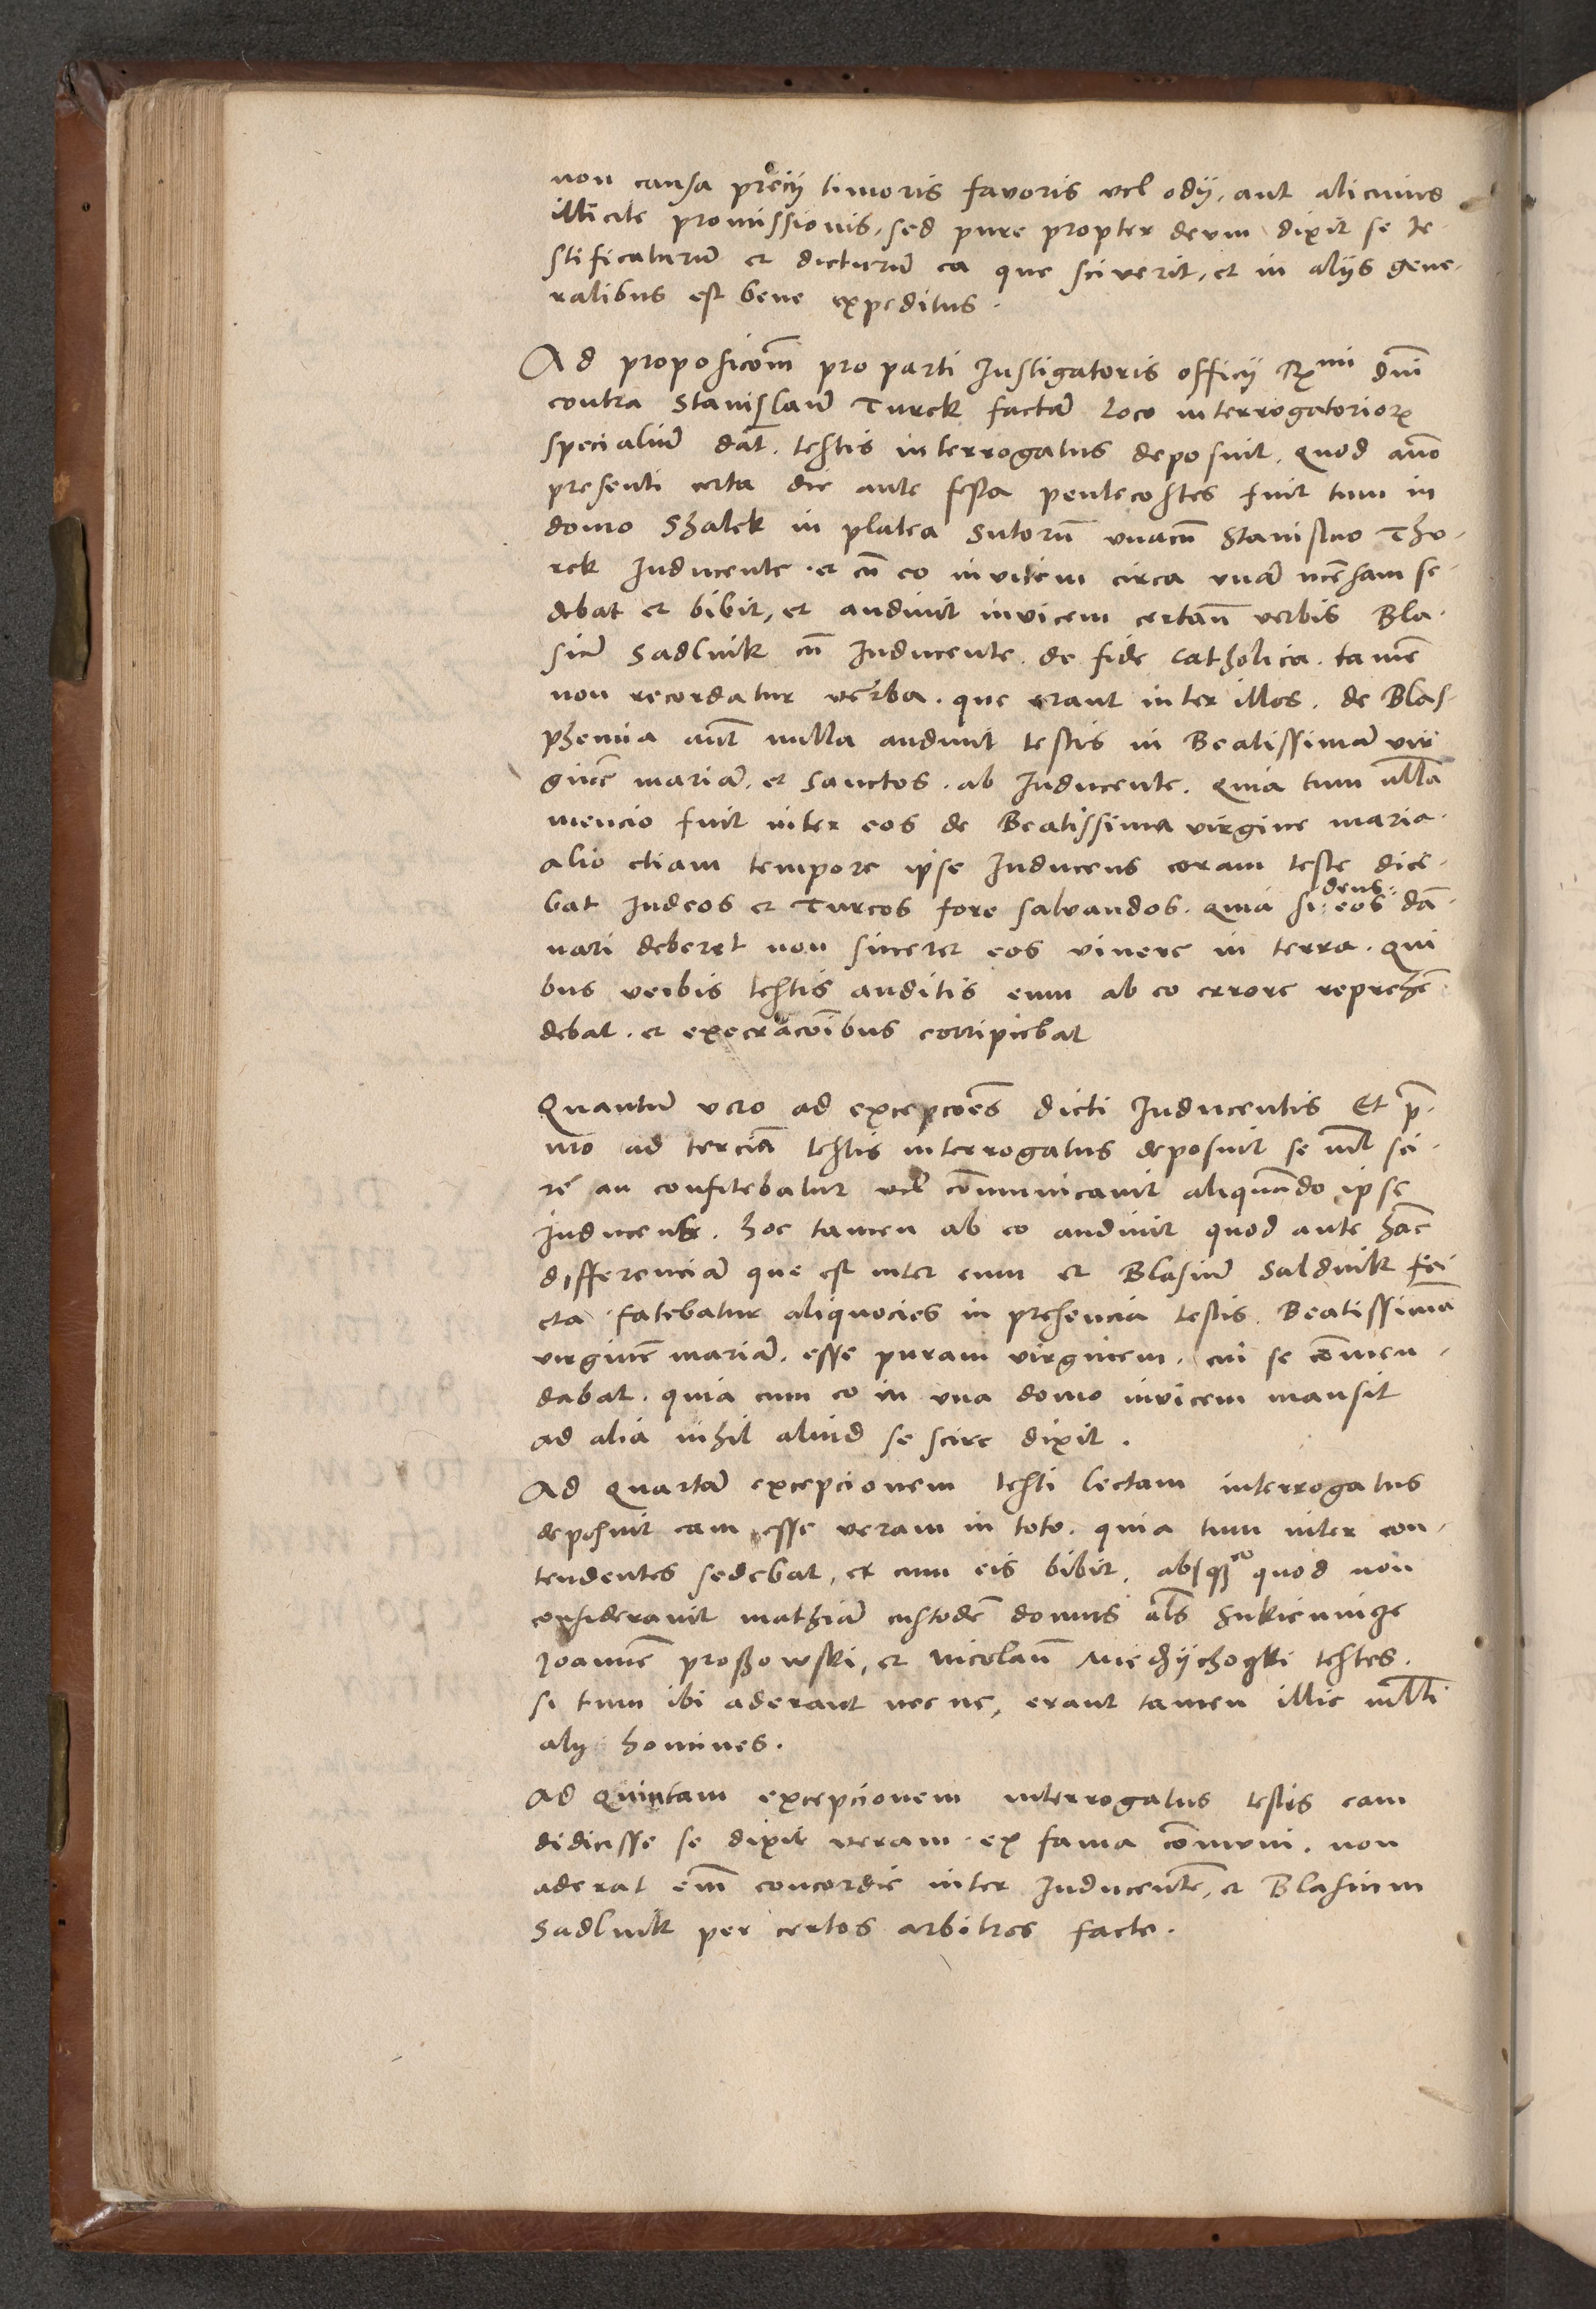 non causa precij timoris favoris vel odij, aut alicuius
illicite promissionis, sed pure propter deum dixit se te-
stificaturũ et dicturũ ea que sciverit, et in alijs gene-
ralibus est bene expeditus.
Ad proposicoñm pro parti Instigatoris officij Rmi dñi
contra Stanislaũ Turek factã loco interrogatoriorꝝ
specialiũ dat̃. testis interrogatus deposuit. Quod anno
presenti certa die ante festa pentecostes fuit tum in
domo Szalek in platea Sutorũ vnacũ Stanislao Tho-
rek Inducente. et cũ eo invicem circa vnã mensam se-
debat et bibit, et audivit invicem certañ verbis Bla-
siũ Sadlnik cũ Inducente. de fide catholica. tamẽ
non recordatur verba. que erant inter illos. de Blas-
phemia aut̃ nulla audivit testis in Beatissimã vir
ginẽ mariã. et Sanctos. ab Inducente. Quia tum nulla
mencio fuit inter eos de Beatissima virgine maria.
alio etiam tempore ipse Inducens coram teste dice-
bat Iudeos et Turcos fore salvandos. quia si deus: eos dã-
nari deberet non sineret eos vivere in terra. Qui
bus verbis testis auditis eum ab eo errore reprehẽ
debat. et execracoñibus corripiebat
Quantũ vero ad excepcoẽs dicti Inducentis Et p̃-
mo ad terciã testis interrogatus deposuit se nil sci-
re an confitebatur vel cõmunicavit aliquando ipse
Inducens. hoc tamen ab eo audivit quod ante hãc
differenciã que est inter eum et Blasiũ Saldnik
fatebatur aliquocies in presencia testis. Beatissimã
virginẽ mariã. esse puram virginem. cui se cõmen-
dabat. quia cum eo in vna domo invicem mansit
ad alia nihil aliud se scire dixit.
Ad Quartã excepcionem testi lectam interrogatus
deposuit eam esse veram in toto. quia tum inter con-
tendentes sedebat, et cum eis bibit, absqꝫ eo quod non
consideravit mathiã custodẽ domus als̃ Sukiennicze
Joannẽ proszowski, et Nicolaũ testes.
si tum ibi aderant nec ne, erant tamen illic multi
alij homines.
Ad Quintam excepcionem interrogatus testis eam
didicisse se dixit veram. ex fama cõmuni. non
aderat eñm concordie inter Inducentẽ, et Blasium
Sadlnik per certos arbitros facte.